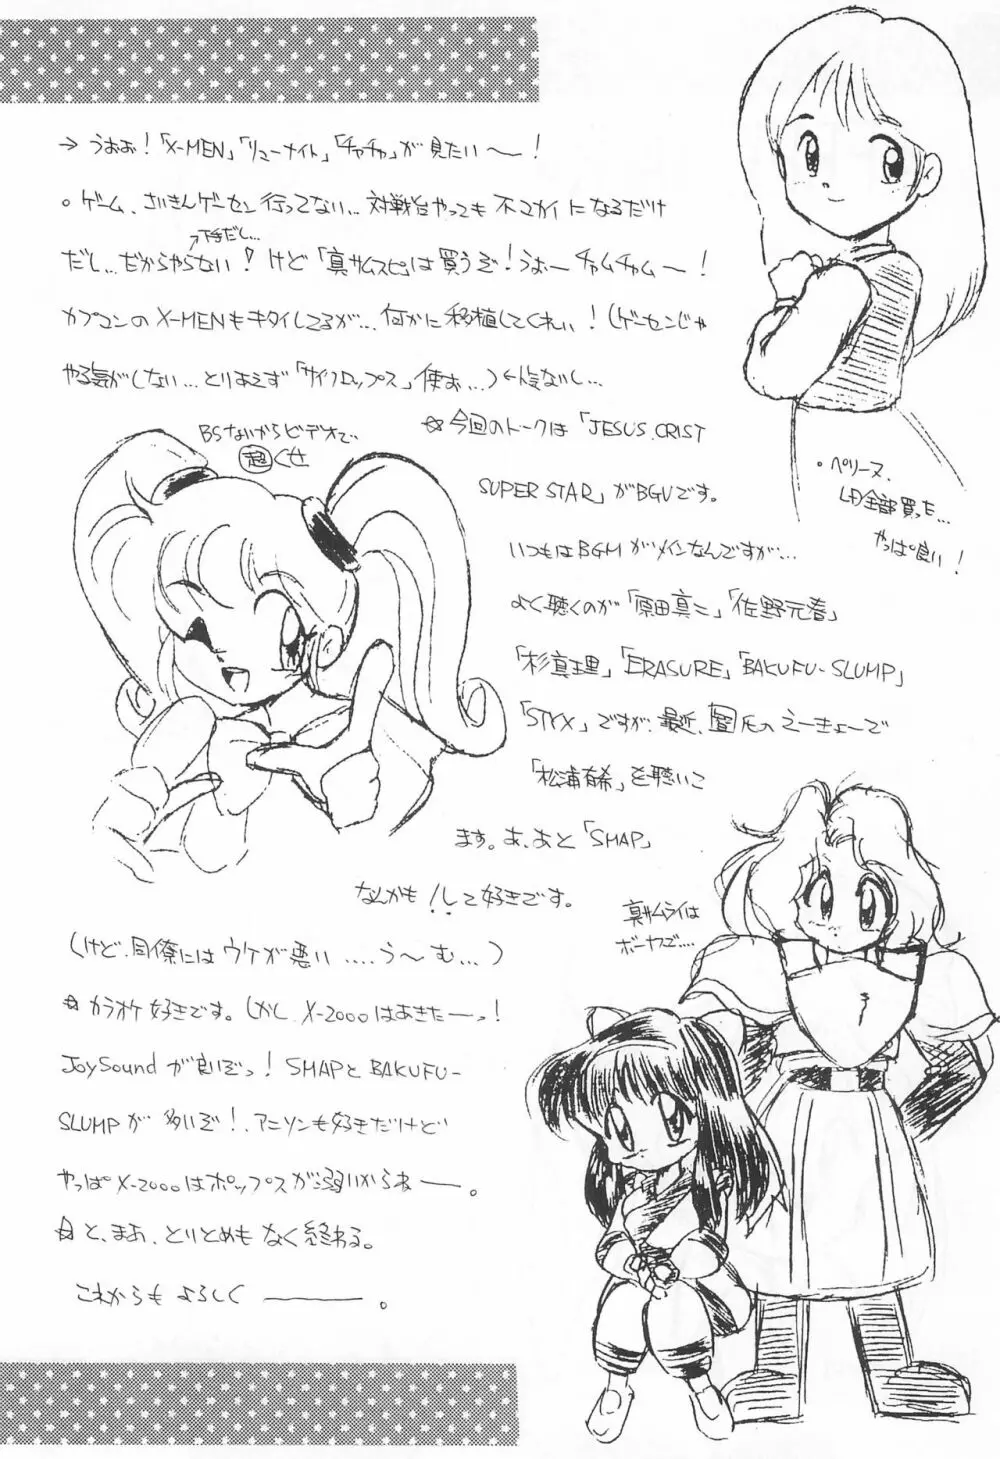 → うおぉ!「X-MEN」「リューナイト」「チャチャ」が見たい〜!
。ゲーム、さいきんゲーセン行ってない…対戦台やっても不マカイになるだけ
→下手だし…
だし…だからやらない!けど「真サムスピ」は買うぞ!うおーチャムチャム〜!
カプコンのX-MENもキタイしてるが…何かに移植してくれい!(ゲーセンじゃ
やる気がしない…とりあえず「サイクロップス」使お…)←人気ないし…
BSないからビデオで…
超くせ
☆今回のトークは「JESUS.CRIST
SUPER STAR」がBGVです。
いつもはBGMがメインなんですが…
よく聴くのが「原田真二」「佐野元春」
「杉真理」「ERASURE」「BAKUFU-SLUMP」
「STYX」ですが、最近、氏のえーきょーで
「松浦有希」を聴いて
ます。あ、あと「SMAP」
なんかも!して好きです。
(けど、同僚にはウケが悪い….う〜む…)
☆カラオケ好きです。しかし、X-2000はあきたーっ!
JoySoundが良いぞっ!SMAPとBAKUFU-
SLUMPが多いぞ!、アニソンも好きだけど
やっぱX-2000はポップスが弱いからねー。
☆と、まあ、とりとめもなく終わる。
これからもよろしく――――。
・ペリーヌ、
LD全部買った…
やっぱ良い!
真サムライは
ボーヤで….